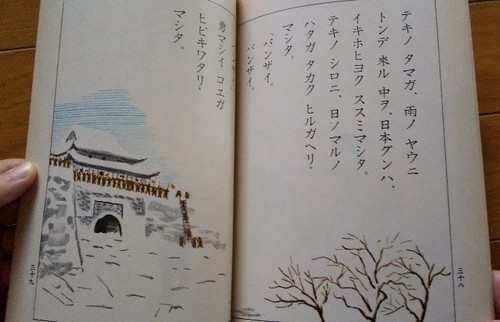 テキノ タマガ、雨ノ ヤウニ
トンデ 來ル 中ヲ、日本グンハ、
イキホヒヨク ススミマシタ。
テキノ シロニ、日ノマルノ
ハタガ タカク ヒルガヘリ
マシタ。
「バンザイ。
バンザイ。
勇マシイ コヱガ
ヒビキワタリ
マシタ。
三十八
三十九